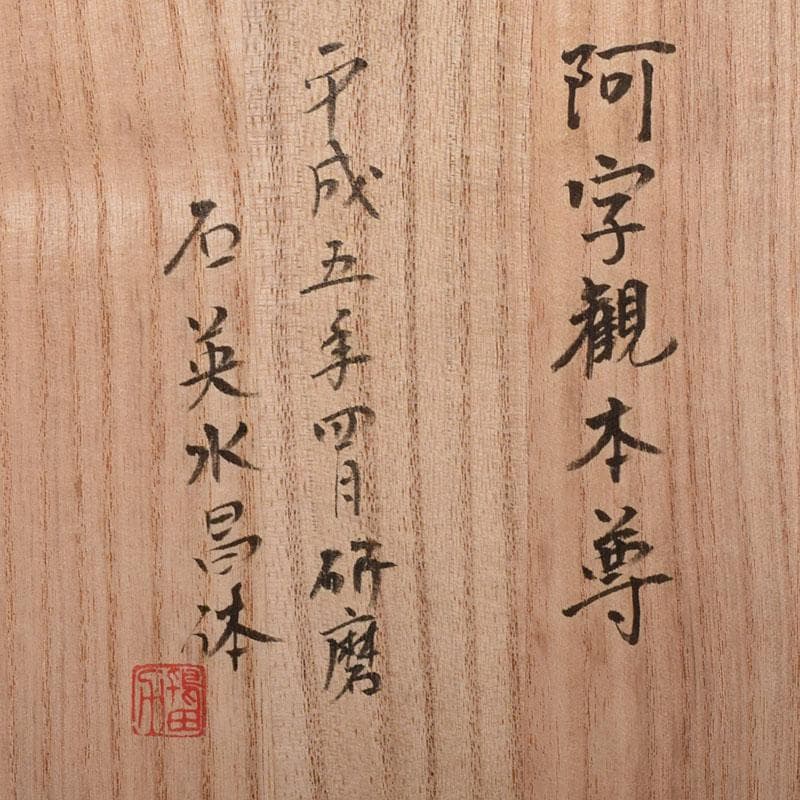 阿字観本尊
平成五年四月研磨
石英水昌体